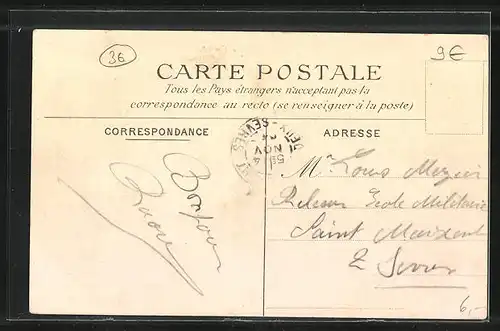 36
9€
CARTE POSTALE
Tous les Pays étrangers n'acceptant pas la
correspondance au recto (se renseigner à la poste)
CORRESPONDANCE
ADRESSE
Bonjour
SÈVRES
NOV
Mr Louis
École Militaire
Saint Maixent
2 Sèvres
6,-